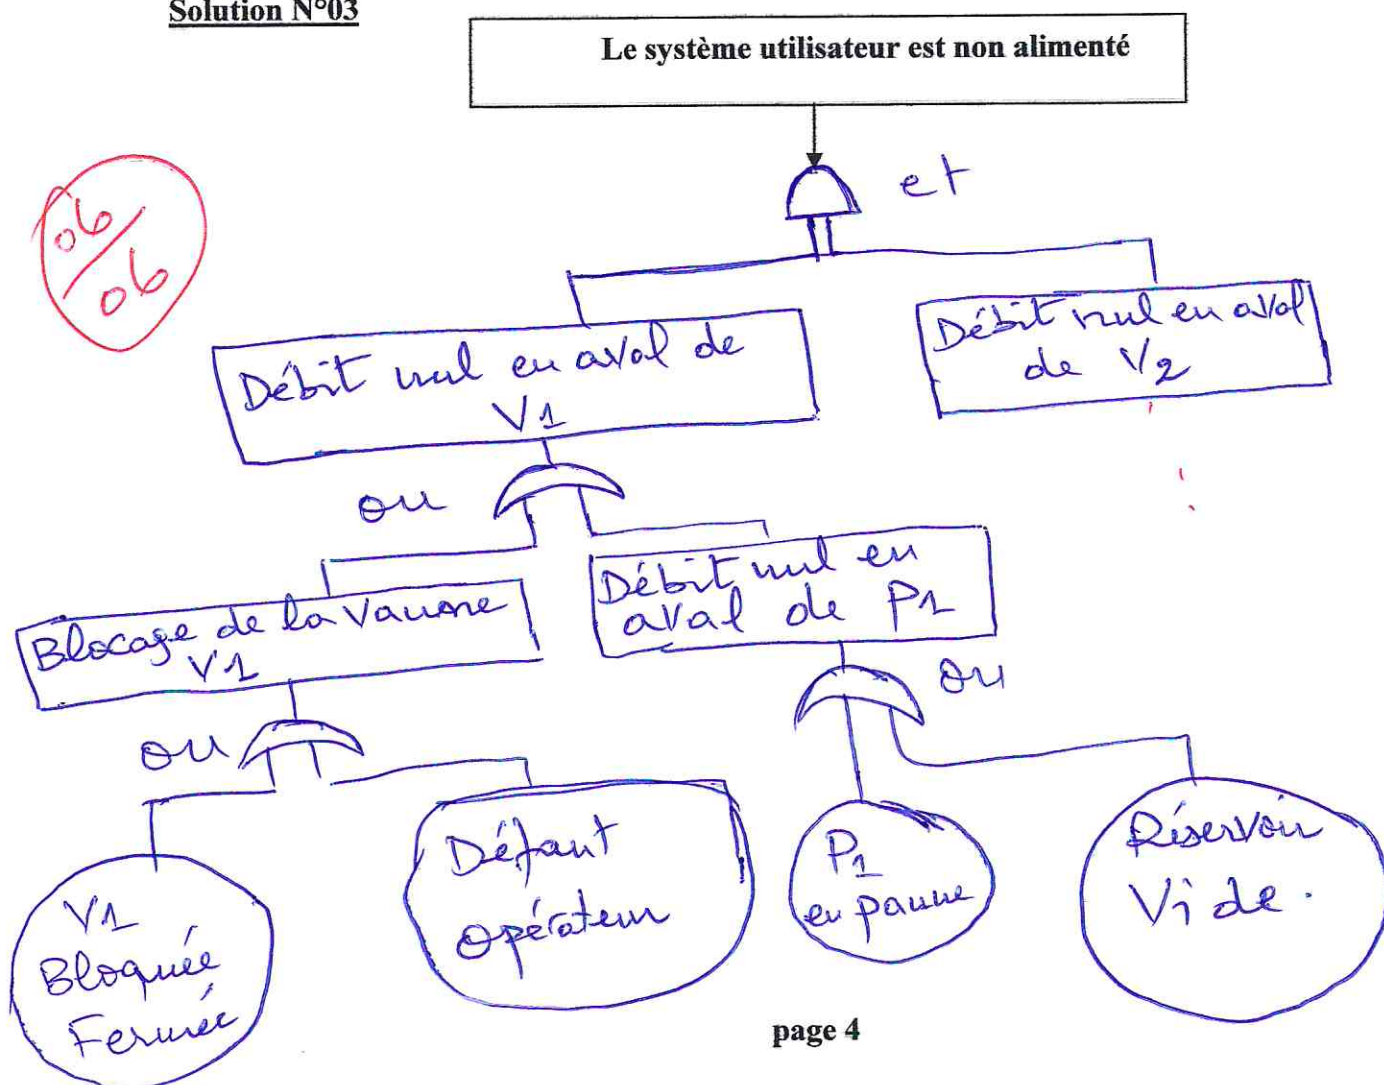 Solution N°03
Le système utilisateur est non alimenté
et
06/06
Débit nul en aval de
V1
Débit nul en aval
de V2
ou
Blocage de la Vanne
V1
Débit nul en
aval de P1
ou
ou
V1
Bloquée
Fermée
Défaut
opérateur
P1
en panne
Réservoir
Vide.
page 4